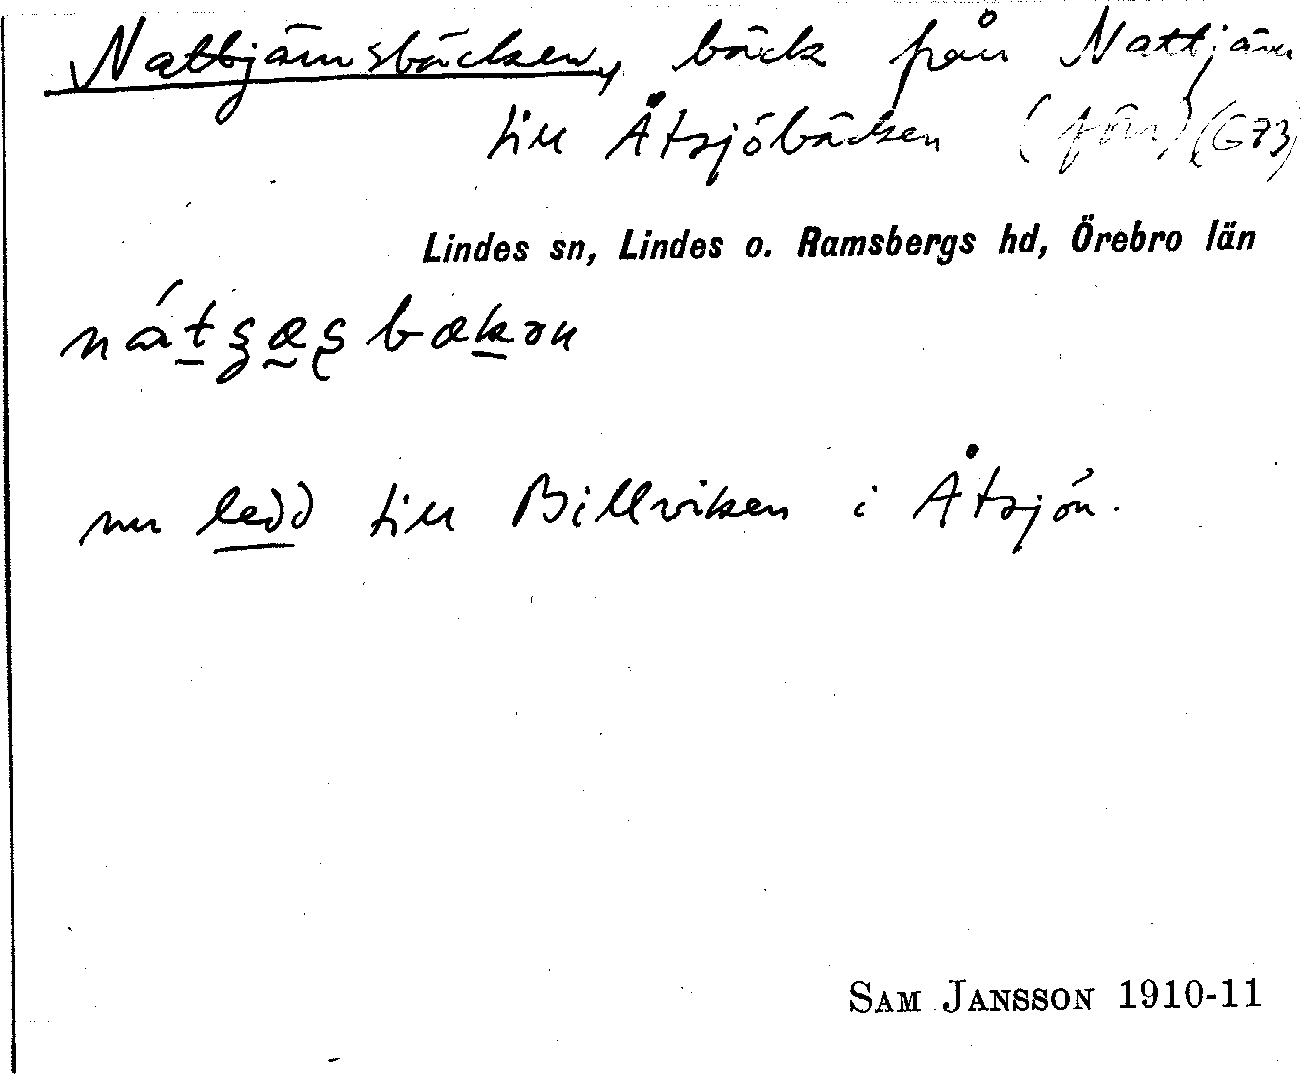 Nattjärnsbäcken, bäck från Nattjärn
till Åtsjöbäcken (förr) (G73)
Lindes sn, Lindes o. Ramsbergs hd, Örebro län
nu ledd till Billviken i Åtsjön.
SAM JANSSON 1910-11